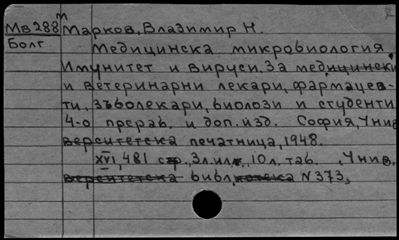 Мв 288 м Марков, Владимир Н.
Болг
Медицинска микробиология,
Имунитет и вируси. За медицински
и ветеринарни лекари, фармацев-
ти, зъболекари, биолози и студенти
4-о прераб. и доп. изд. София, Унив
верситетска печатница, 1948.
XVI, 481 стр., 3 л. ил., 10 л. таб. , Унив.
верситетска библиотека N 373,